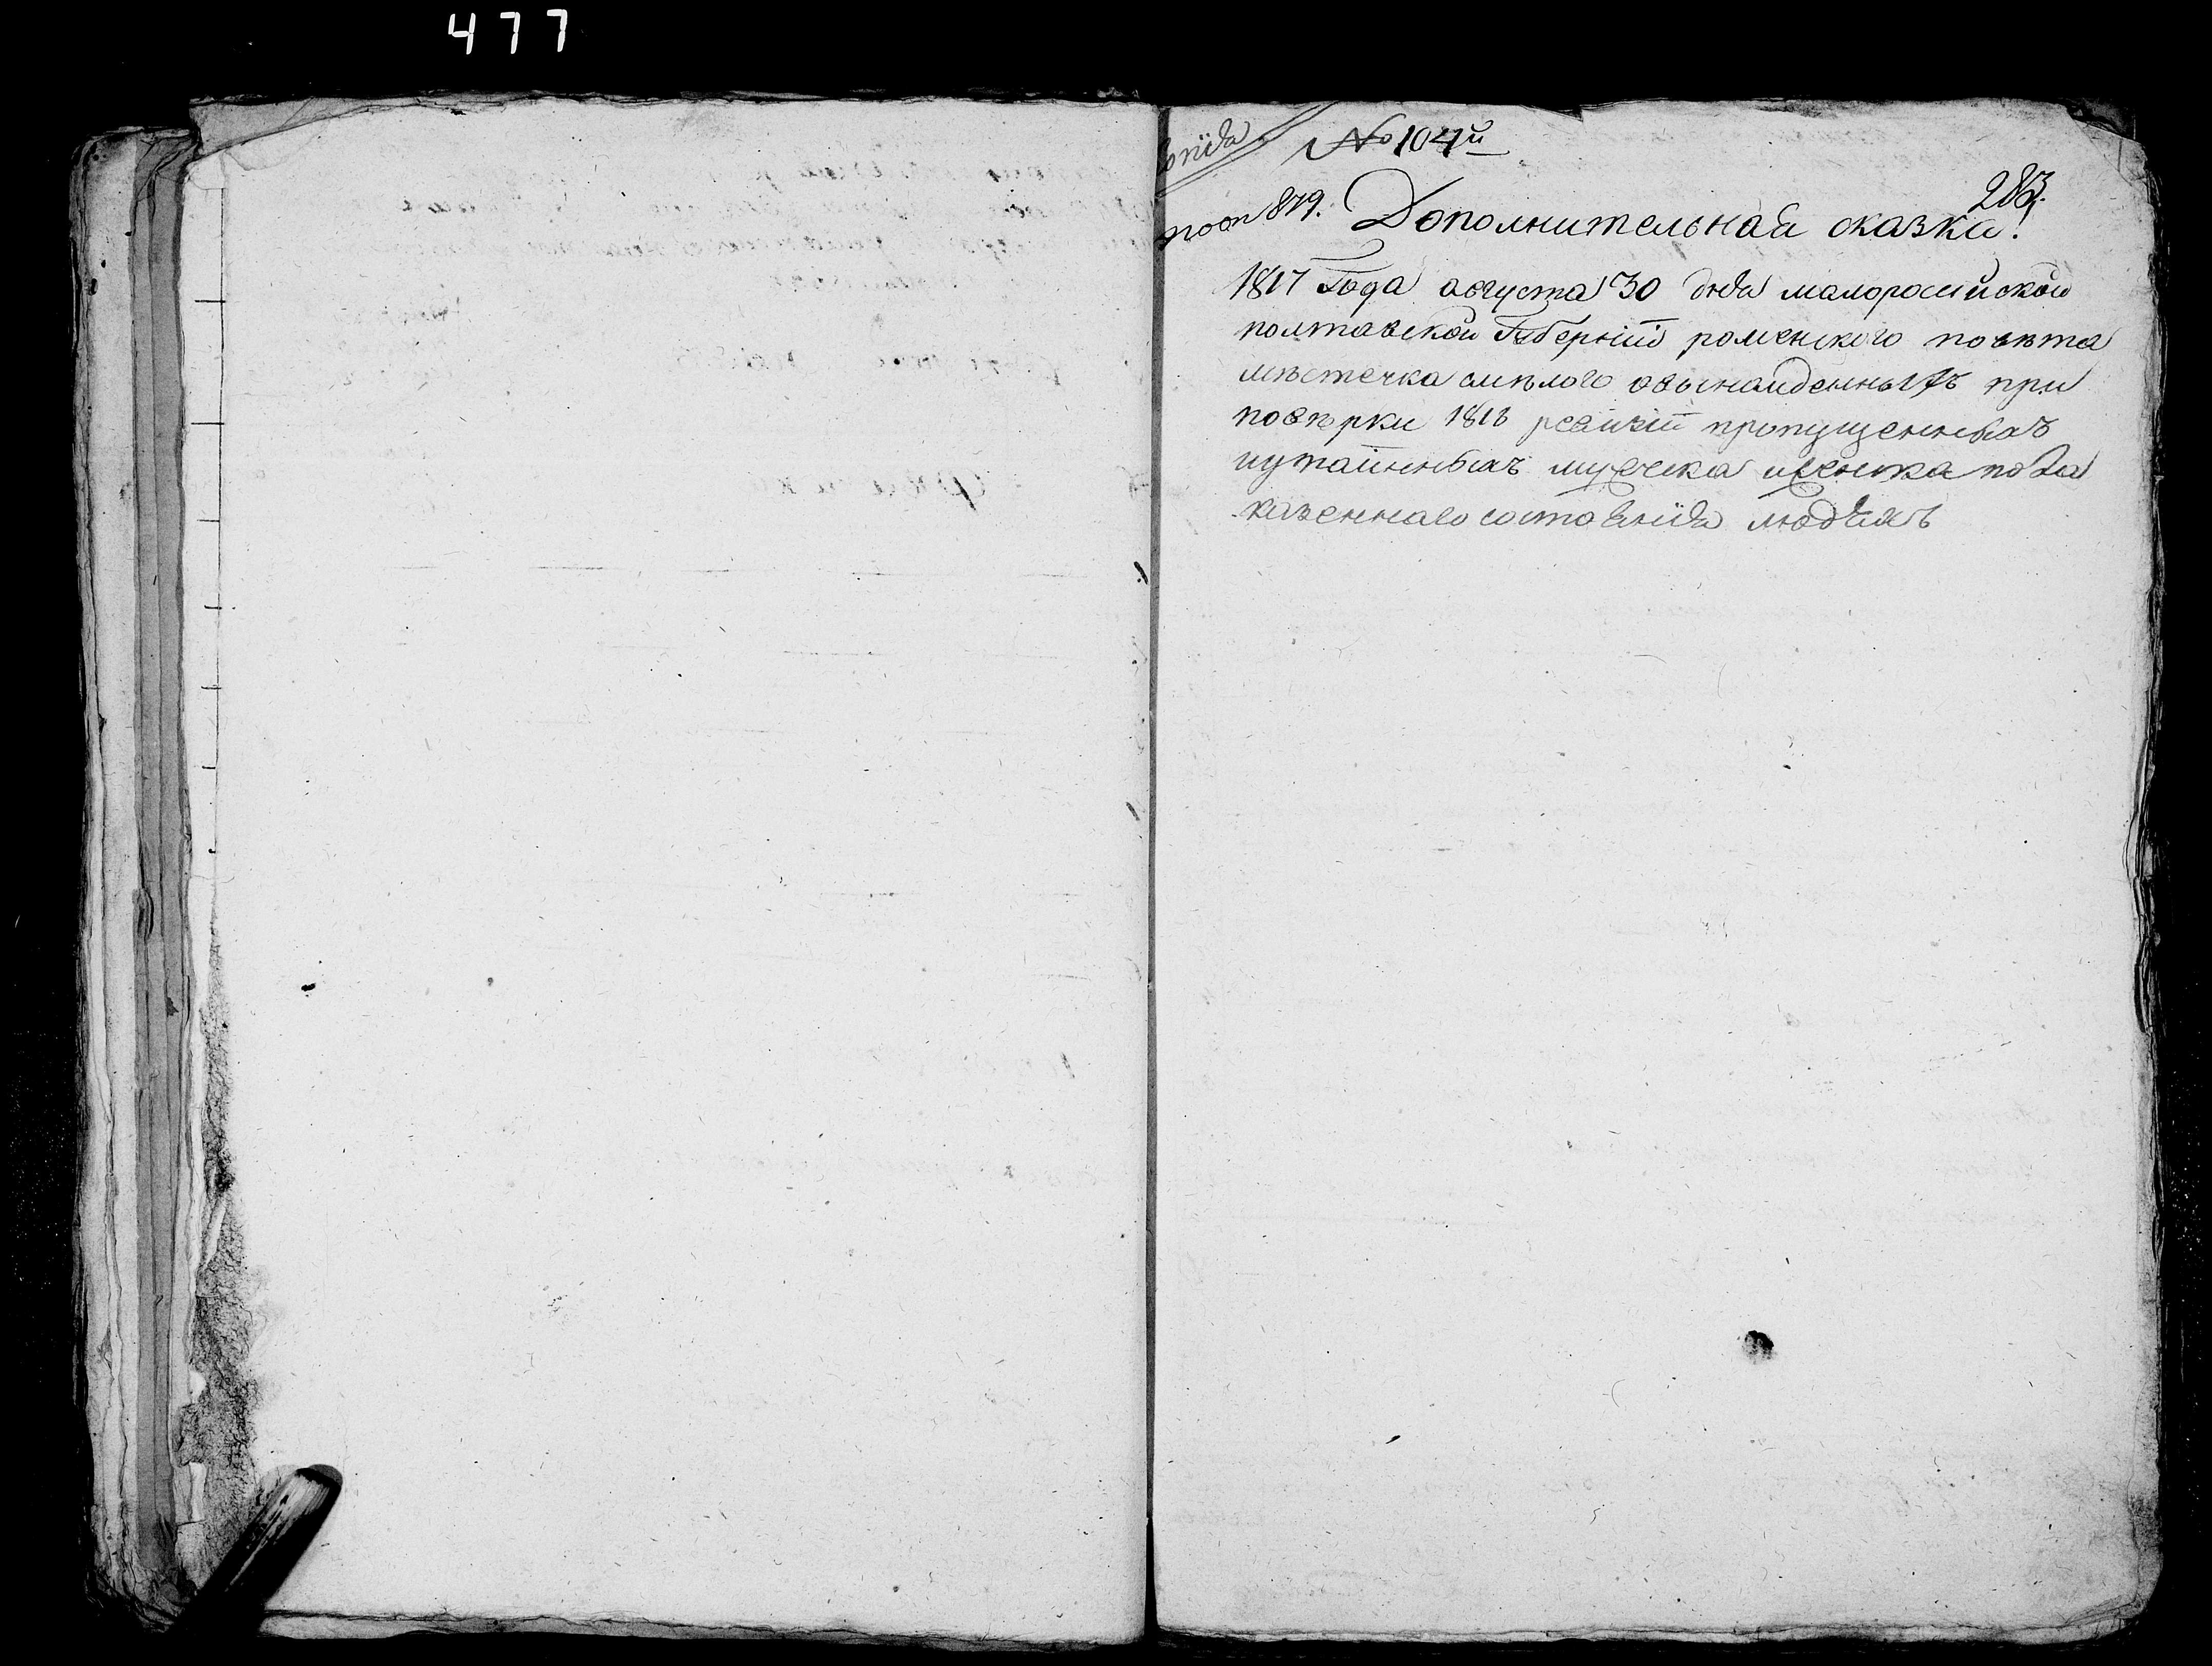 477
№ 104й
283.
879. Дополнительная сказка!
1817 Года августа 30 дня малоросийской
полтавской Губернии роменского повѣта
мѣстечка смѣлого обынайденныхъ при
повѣрки 1816 ревизіи пропущенныхъ
иутаинныхъ мужеска иженска пола
казеннаго состоянія людѣяхъ